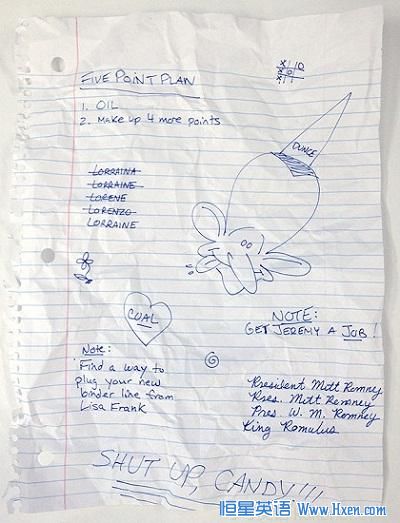 FIVE POINT PLAN
1. OIL
2. Make up 4 more points
X | O
X O
X
OUNCE
LORRAINA
LORRAINE
LORENE
LORENZO
LORRAINE
COAL
NOTE:
GET JEREMY A JOB!
Note:
Find a way to
plug your new
binder line from
Lisa Frank
President Mitt Romney
Pres. Mitt Romney
Pres. W. M. Romney
King Romulus
SHUT UP, CANDY!!!
恒星英语 Www.Hxen.com